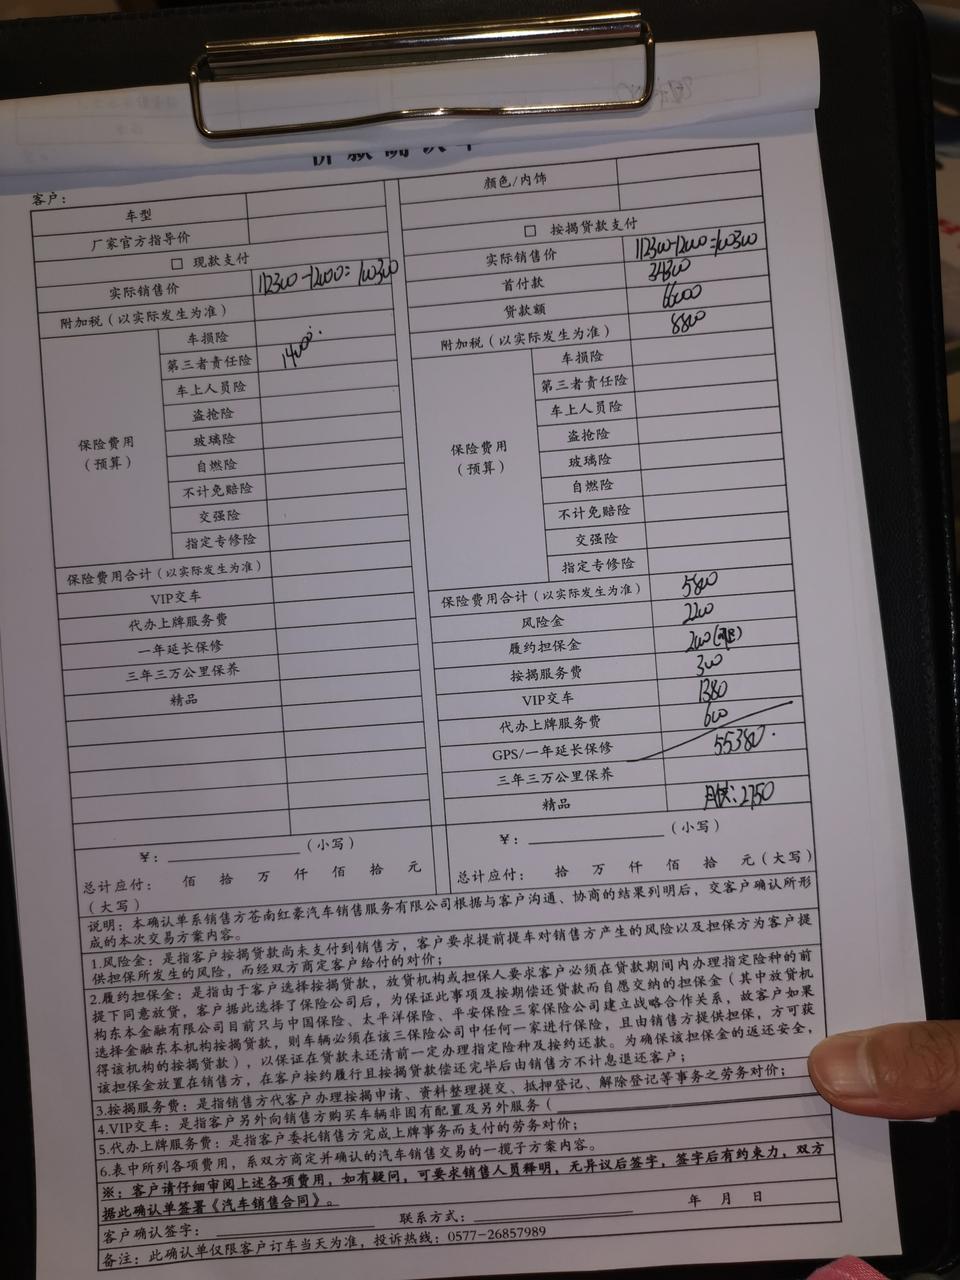 价款确认单
客户：
车型
厂家官方指导价
□ 现款支付
实际销售价 112300-12000=100300
附加税（以实际发生为准）
保险费用
（预算）
车损险
第三者责任险 14000.
车上人员险
盗抢险
玻璃险
自燃险
不计免赔险
交强险
指定专修险
保险费用合计（以实际发生为准）
VIP交车
代办上牌服务费
一年延长保修
三年三万公里保养
精品
¥：（小写）
总计应付： 佰 拾 万 仟 佰 拾 元
（大写）
颜色/内饰
□ 按揭贷款支付
实际销售价 112300-12000=100300
首付款 34300
贷款额 66000
附加税（以实际发生为准） 8800
保险费用
（预算）
车损险
第三者责任险
车上人员险
盗抢险
玻璃险
自燃险
不计免赔险
交强险
指定专修险
保险费用合计（以实际发生为准） 5800
风险金 2200
履约担保金 2000
按揭服务费 300
VIP交车 1380
代办上牌服务费 600
GPS/一年延长保修 55380.
三年三万公里保养
精品 月供：2750
¥：（小写）
总计应付： 拾 万 仟 佰 拾 元（大写）
说明：本确认单系销售方苍南红豪汽车销售服务有限公司根据与客户沟通、协商的结果列明后，交客户确认所形
成的本次交易方案内容。
1.风险金：是指客户按揭贷款尚未支付到销售方，客户要求提前提车对销售方产生的风险以及担保方为客户提
供担保所发生的风险，而经双方商定客户给付的对价；
2.履约担保金：是指由于客户选择按揭贷款，放贷机构或担保人要求客户必须在贷款期间内办理指定险种的前
提下同意放贷，客户据此选择了保险公司后，为保证此事项及按期偿还贷款而自愿交纳的担保金（其中放贷机
构东本金融有限公司目前只与中国保险、太平洋保险、平安保险三家保险公司建立战略合作关系，故客户如果
选择金融东本机构按揭贷款，则车辆必须在该三保险公司中任何一家进行保险，且由销售方提供担保，方可获
得该机构的按揭贷款），以保证在贷款未还清前一定办理指定险种及按约还款。为确保该担保金的返还安全，
该担保金放置在销售方，在客户按约履行且按揭贷款偿还完毕后由销售方不计息退还客户；
3.按揭服务费：是指销售方代客户办理按揭申请、资料整理提交、抵押登记、解除登记等事务之劳务对价；
4.VIP交车：是指客户另外向销售方购买车辆非固有配置及另外服务（
5.代办上牌服务费：是指客户委托销售方完成上牌事务而支付的劳务对价；
6.表中所列各项费用，系双方商定并确认的汽车销售交易的一揽子方案内容。
※：客户请仔细审阅上述各项费用，如有疑问，可要求销售人员释明，无异议后签字，签字后有约束力，双方
据此确认单签署《汽车销售合同》。
客户确认签字： 联系方式： 年 月 日
备注：此确认单仅限客户订车当天为准，投诉热线：0577-26857989